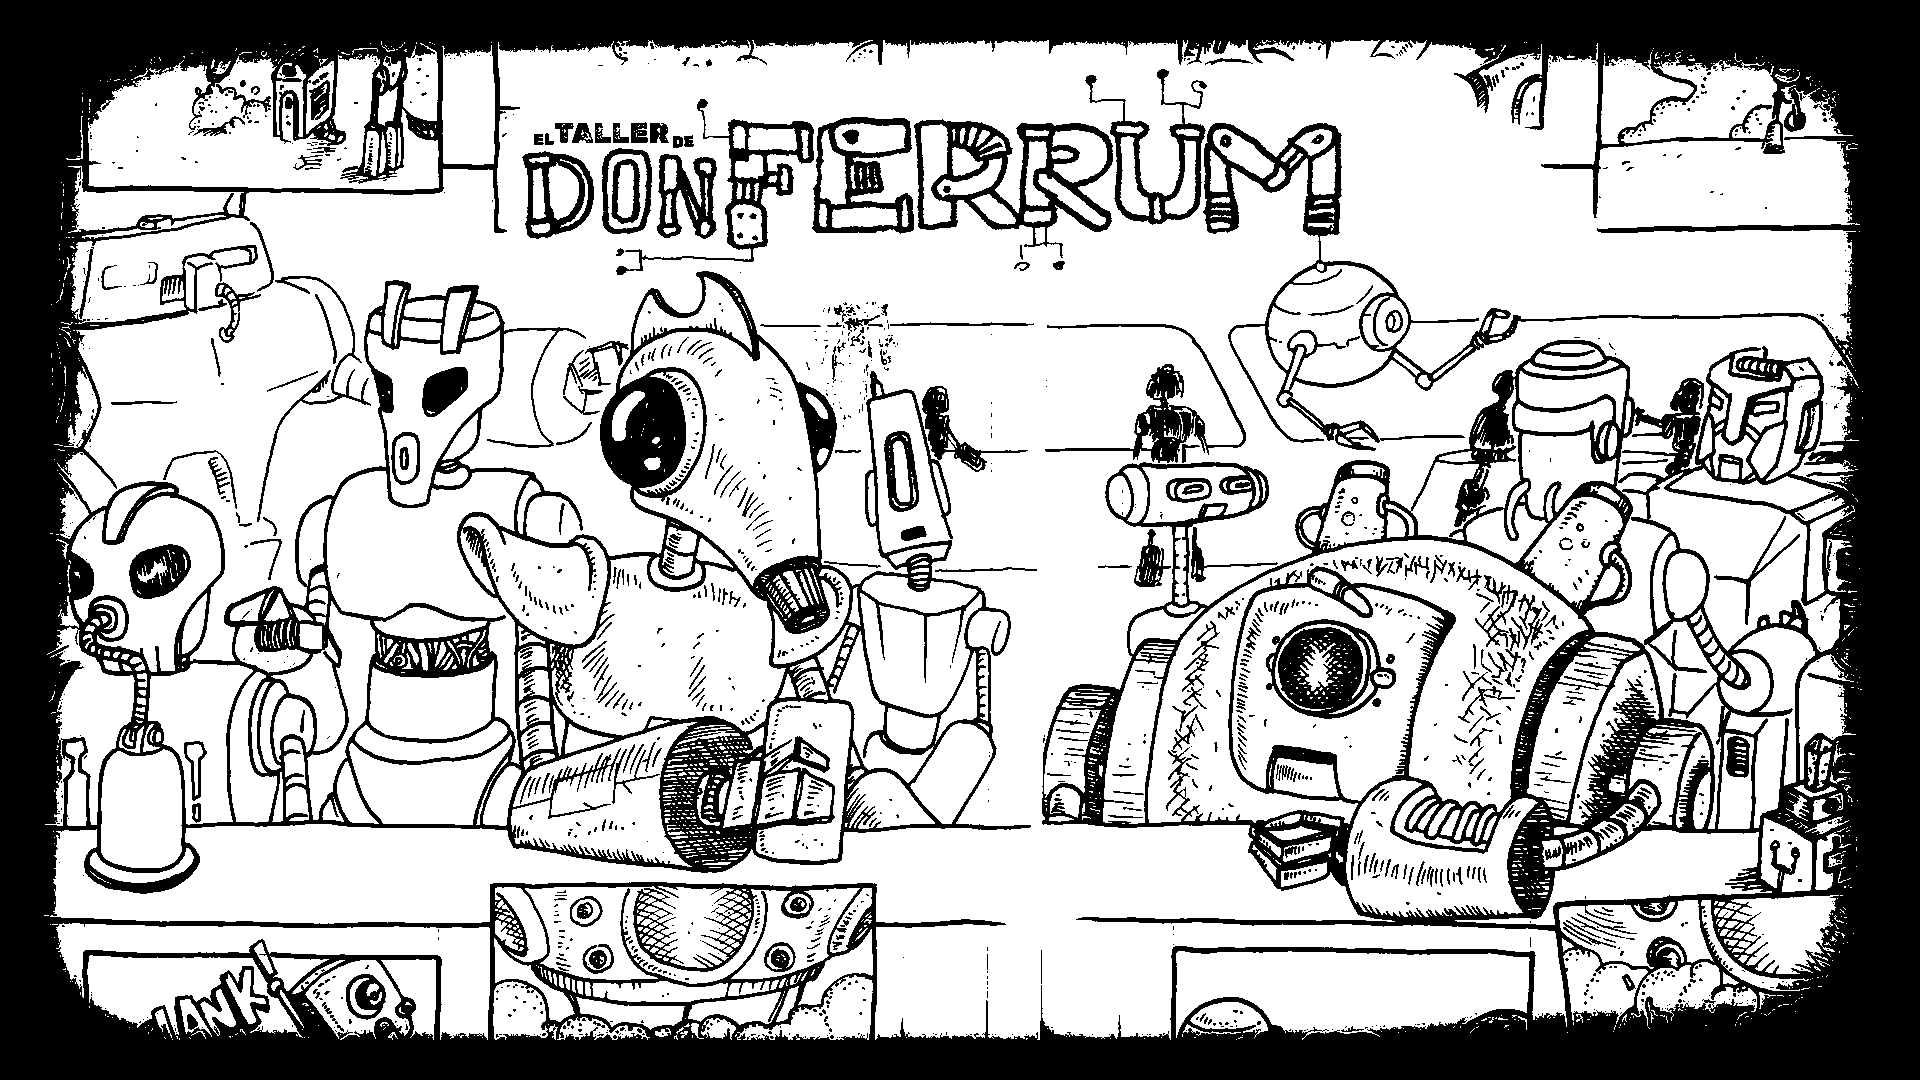 EL TALLER DE
DON FERRUM